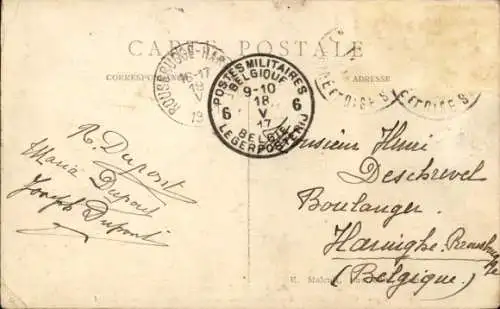 CARTE POSTALE
CORRESPONDANCE
ADRESSE
16-17
18
V
19
POSTES MILITAIRES
BELGIQUE
9-10
18
V
17
6 6
BELGIE
LEGERPOSTERIJ
R. Dupont
Maria Dupont
Joseph Dupont
Monsieur Henri
Deschrevel
Boulanger.
Haringhe
(Belgique.)